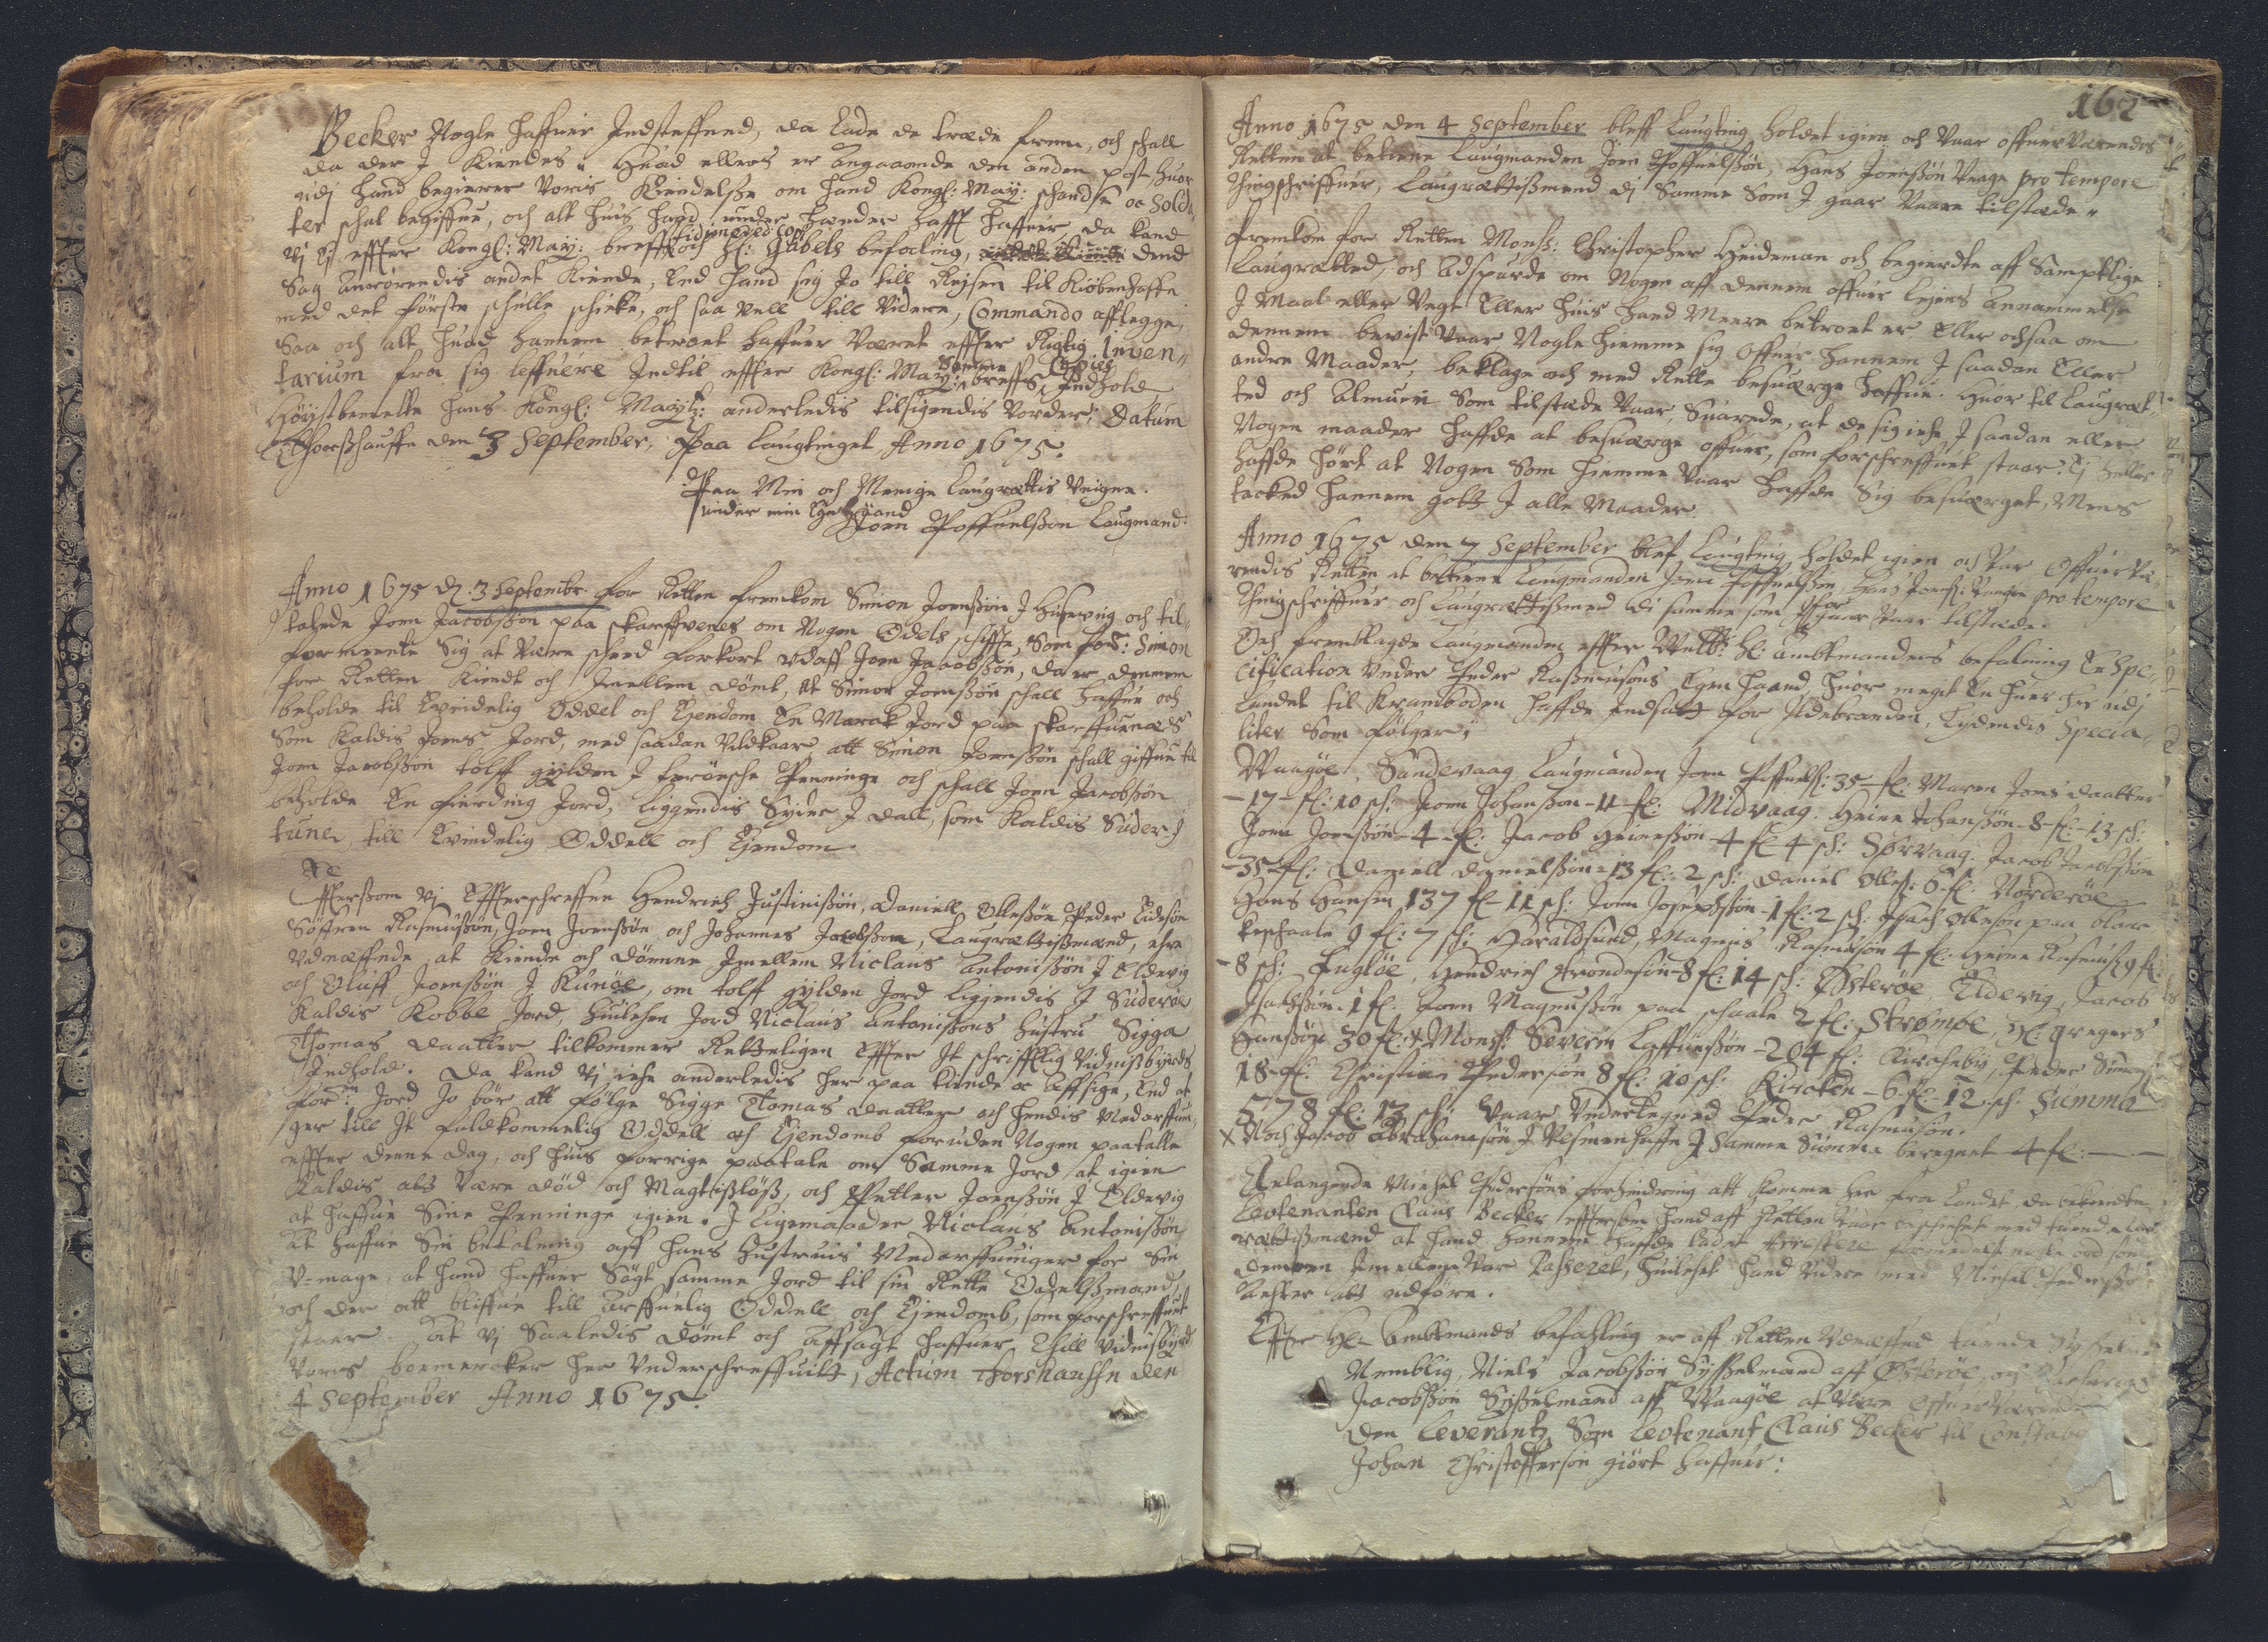 Becker Nogle haffuer Indsteffned, da Lade de træde frem, och schall
da der J Kiendes. Huad ellers er Angaaende den anden post huor
udj hand begierer Voris Kiendelße om hand Kongl: May: schandse oc Solda
ter schal begiffue, och alt huis hand under hænder hafft haffuer, da kand
Vidimered Copi
Vj Ej effter Kongl: May: breff och Hl: Gabels befaling, dend
Sag Anrörendis andet Kiende, End hand sig jo till Reisen til Kiöbenhaffn
med det förste schulle schicke, och saa vell till Videre, Commando afflegge,
Saa och alt huad hannem betroet haffuer Været effter Rigtig Inven„
Samme Copies
tarium fra sig leffuere Indtil effter Kongl: May: breffs Indhold
Höystbemelte hans Kongl: Maytz: anderledis tilsigendis Vorder, Datum
Thorßhauffn den 3 September, Paa Laugtinget, Anno 1675.
Paa Min och Menige Laugrættis Veigne.
under min Egen Haand
Joen Poffuelßon Laugmand.
Anno 1675 dj. 3 Septembr. for Retten fremkom Simon Joenßön J Huseuig och til„
talede Joen Jacobßön paa Skarffvenes om Nogen Odels schiffte, Som ford: Simon
formeente Sig at Være scheed forkort udaff Joen Jacobßön, da er dennem
for Retten Kiendt och Imellem dömt, At Simon Joenßön schall haffue och
beholde til Evindelig Oddel och Ejendom En Marck Jord paa Skarffuenæs
Som Kaldis Joens Jord, med saadan Vilckaar att Simon Joenßön schall giffue til
Joen Jacobßön tolff gylden J færöesche Penninge och schall Joen Jacobßön
beholde En fierding Jord, liggendis Synder J dall, som Kaldis Süder J
tune, till Evindelig Oddell och Ejendom.
Effterßom Vj Effterschreffne Hendrich Justinißön, Daniell Olleßön Peder Eideßön
Söffren Rasmußön, Joen Joenßön och Johannes Jacobßön, Laugrættißmænd, ehre
Udneffnde at Kiende och dömme Imellem Niclaus Antonißön J Eldevig
och Oluff Joenßön J Kunöe, om tolff gylden Jord liggendis J Süderöe
Kaldis Kobbe Jord, huilchen Jord Niclaus Antonißöns hustru Sigga
Thomas daatter tilkommer Retteligen Effter It schrifftlig Vidnißbyrds
Indhold. Da kand Vj iche anderledis her paa kiende oc Affsige, End at
for: Jord Jo bör att fölge Sigge Tomas daatter och hendis Medarffuin„
ger till It fuldkommelig Oddell och Ejendomb foruden Nogen paatalle
effter denne dag, och huis forrige paatale om Samme Jord at igien
Kaldis alt Være död och Magtißlöß, och Petter Joenßön J Eldevig
at haffue Sine Penninge igien. J Ligemaader Niclaus Antonißön
At haffue Sin betalning aff hans hustruis Medarffuinger for Sin
U-mage, at hand haffuer Sögt samme Jord til sin Rette Odelßmand,
och der att bliffue till Arffuelig Oddell och Ejendomb, som forschreffuet
staar. At Vj Saaledis dömt och Affsagt haffuer Till Vidnisbyrd
Vores boemercker her Underschreffuitt, Actum Thorshauffn den
4 September Anno 1675.
162
Anno 1675 den 4 September bleff Laugting holdet igien och Vaar offuerværendes
Retten at betiene Laugmanden Joen Poffuelßön, Hans Joenßön Vaage pro tempore
Thingschriffuer, Laugrættißmend dj Samme Som J gaar Vaare tilstæde„
Fremkom for Retten Monß: Christopher Heideman och begierdte aff Samptlige
Laugrætted, och Adspurde om Nogen aff dennem offuer Lejens Annammelse
J Maal eller Vegt Eller huis hand Meere betroet er, Eller ochsaa om
dennem bevist Vaar Nogle hiemme sig Offuer hannem J saadan Eller
andre Maader, beklage och med Rette besuærge haffue. Huor til Laugræt
ted och Almuen Som tilstæde Vaar, Suarede, at de sig iche J saadan eller
Nogen maader haffde at besuærge offuer, som forschreffuet staar. Ej heller
haffde hört at Nogen Som hiemme Vaar haffde Sig besuærget, Mens
tacked hannem gott J alle Maader
Anno 1675 den 7 September blef Laugting holdet igien och Var Offueruæ
rendis Retten at betiene Laugmanden Joen Poffuelßön, Hans Joenß: Vaage pro tempore
Thingschriffuer och Laugrættißmend di samme som för Vaar tilstæde.
Och fremblagde Laugmanden effter Welb: Hl: Ambtmandens befalning En Spe„
cification Under Peder Rasmusöns Egen Haand, huor meget En huer her udj
Landet til Kramboden haffde Indsatt for Ildebranden, Lydendis Specia„
liter Som fölger,
Waagöe, Sandevaag, Laugmanden Joen Poffuelß: 35 fl: Maren Joens daatter
- 17 - fl: 10 sch: Joen Johanßön - 11 fl: Midvaag. Heine Johanßön - 8 fl: - 13 sch:
Joen Joenßön - 4 fl: Jacob Heineßön 4 fl 4 sch: Sörvaag: Jacob Jacobßön
- 35 fl: Daniell Danielßön - 13 fl: 2 sch: Daniel Olleß: 6 fl: Norderöe
Hans Hanßön 137 fl 11 sch: Joen Josephßön - 1 fl: 2 sch. Isach Olleßön paa blanc
keschaale 9 fl: 7 sch: Haraldsund, Magnus Rasmusön 4 fl. Heine Rasmusß 9 fl:
- 8 sch: Fuglöe, Hendrich Trondesön - 8 fl: 14 sch: Österöe, Eldevig, Jacob
Isachßön 1 fl. Joen Magnußön paa schaale 2 fl: Strömöe, Hl: Gregers
Hanßön 30 fl: x Monß: Severin Laffuesßön - 204 fl: Kirchebÿ, Peder Simonß:
18 fl. Christian Pedersön 8 fl: 10 sch: Kircken - 6 fl - 12 sch: Summa
578 fl: 13 sch: Vaar Undertegned Peder Rasmusön.
x Noch Jacob Abrahamsön J Vesmenhaffn J Samme Summa beregnet 4 fl: —.—
Anlangende Michel Pedersöns forhindring att komme her fra Landet, da bekiendte
Leotenanten Claus Becker effterßom hand aff Retten Vaar beschicket med tuende Lau
rættißmend at hand hannem haffde ladet Arrestere formedelst nogle ord som
dennem Imellem Var Passeret, huilchet hand Videre med Michel Pederßön
achter att udföre.
Effter Hl: Ambtmands befahling er aff Retten Udneffned tuende Sysselmænd
Nemblig, Niels Jacobßön Sysselmand aff Österöe, och
Jacobßön Sysselmand aff Waagöe at Være offuerværende
den Leverantz Som Leotenant Claus Becker til Constabel
Johan Christoffersön giört haffuer: